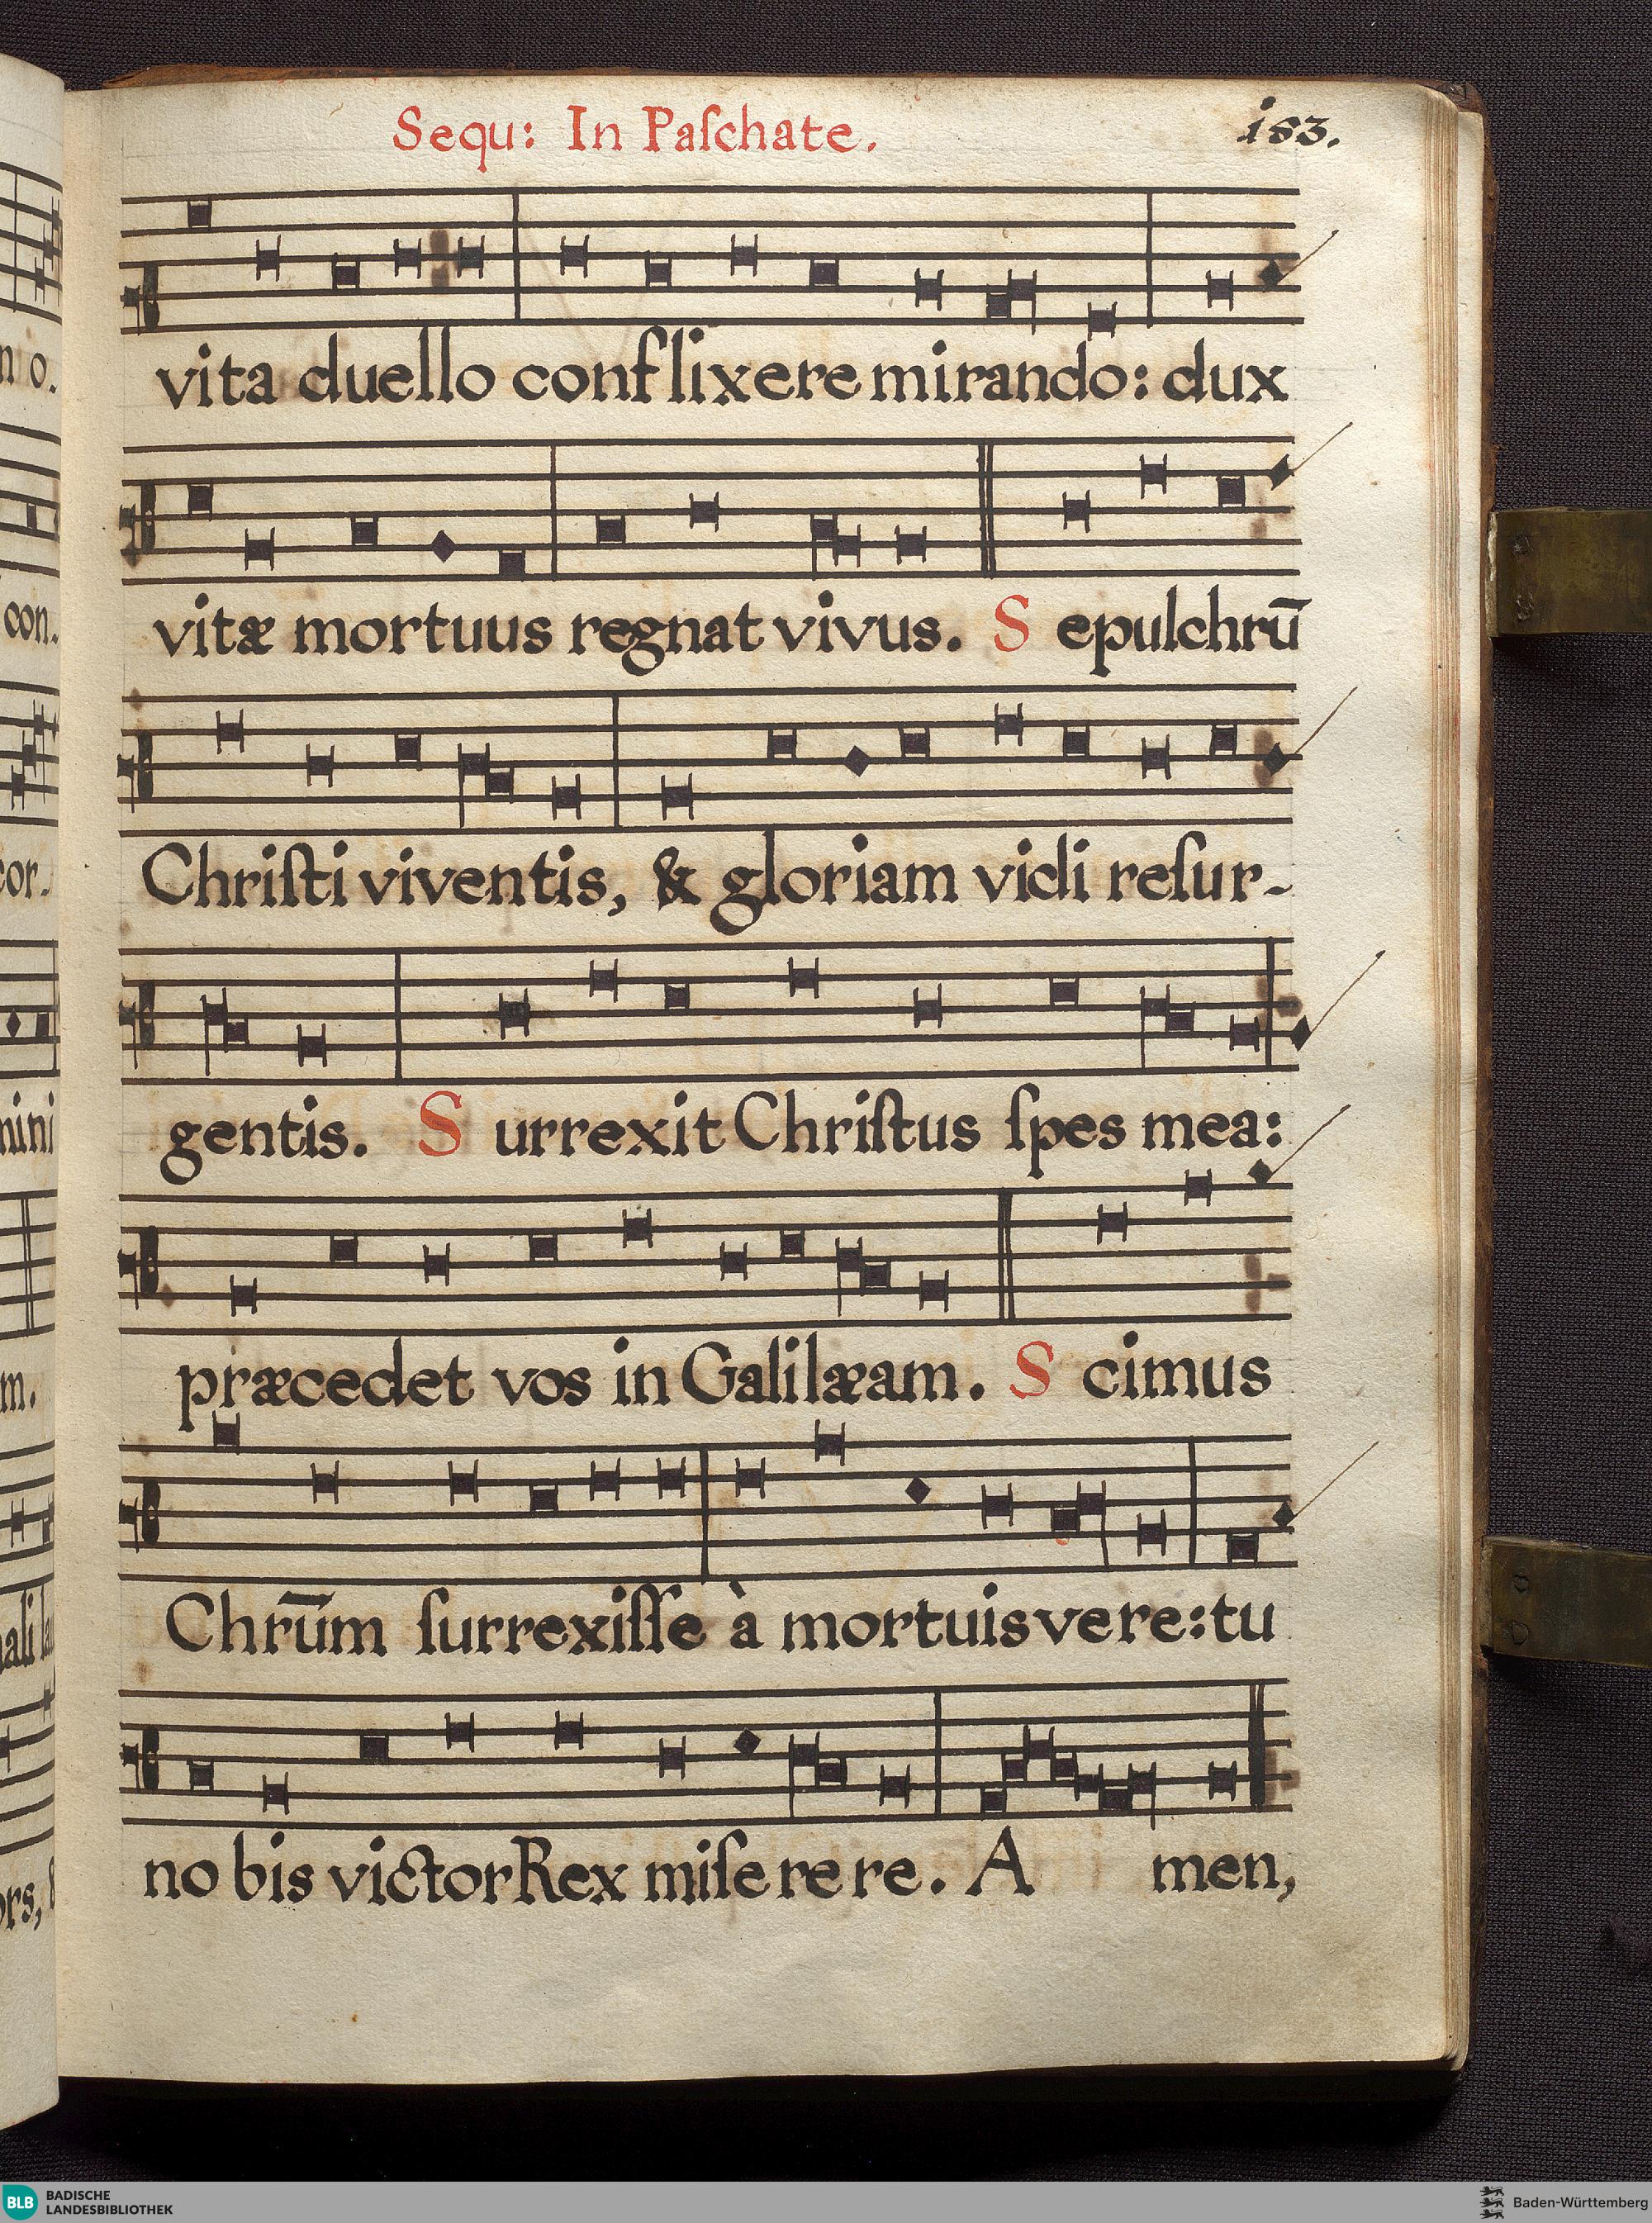 Sequ: In Paſchate. 183.
vita duello conflixere mirando: dux
vitæ mortuus regnat vivus. Sepulchrū
Chriſti viventis, & gloriam vidi reſur-
gentis. Surrexit Chriſtus ſpes mea:
præcedet vos in Galilæam. Scimus
Chrūm ſurrexiſſe à mortuis vere: tu
nobis victor Rex miſerere. Amen,
no.
con.
cor.
mini
m.
ors, &
BLB BADISCHE
LANDESBIBLIOTHEK
Baden-Württemberg